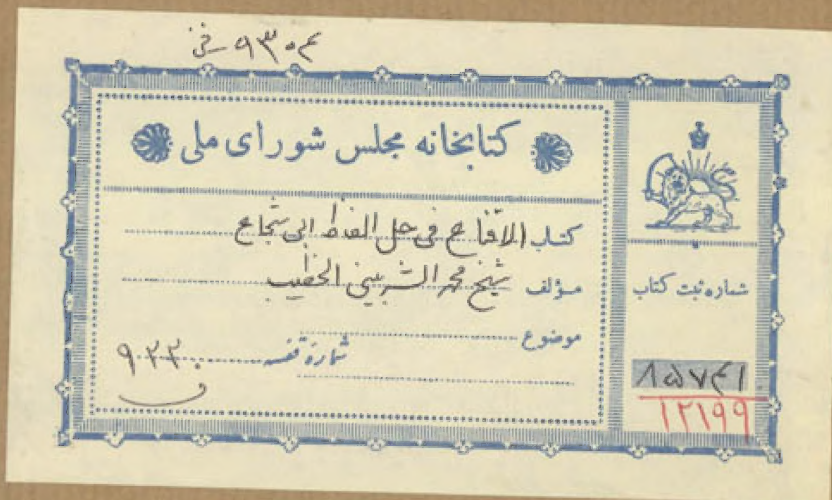 ۹۳۰۴ فن
کتابخانه مجلس شورای ملی
کتاب الاقناع فی حل الفاظ ابی شجاع
مؤلف شیخ محمد الشربینی الخطیب
موضوع
شماره قفسه ۹۰۲۲۰
شماره ثبت کتاب
۸۵۷۴۱
۱۲۱۹۹